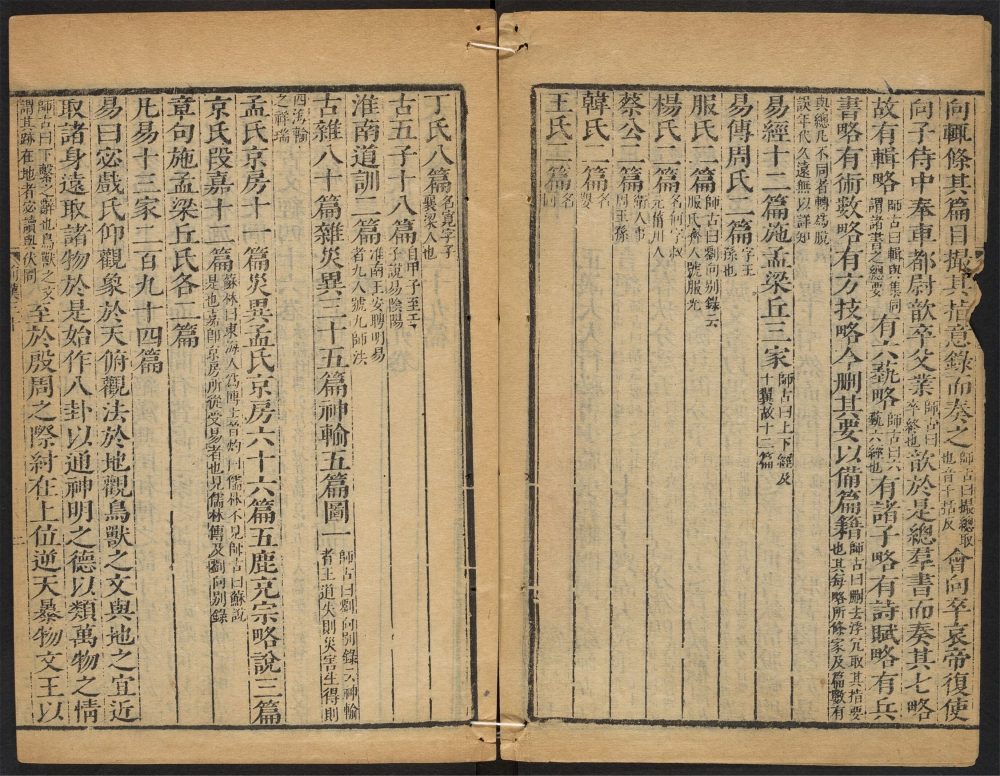 向輒條其篇目撮其指意錄而奏之師古曰撮總取也音千括反會向卒哀帝復使
向子侍中奉車都尉歆卒父業師古曰卒終也歆於是總羣書而奏其七略
故有輯略師古曰輯與集同謂諸書之總要有六藝略師古曰六藝六經也有諸子略有詩賦略有兵
書略有術數略有方技略今刪其要以備篇籍師古曰刪去浮冗取其指要也其每略所條家及篇數有
與總凡不同者轉寫脫誤年代久遠無以詳知
易經十二篇施孟梁丘三家師古曰上下經及十翼故十二篇
易傳周氏二篇字王孫也
服氏二篇師古曰劉向別錄云服氏齊人號服光
楊氏二篇名何字叔元菑川人
蔡公二篇衛人事周王孫
韓氏二篇名嬰
王氏二篇名同
丁氏八篇名寬字子襄梁人也
古五子十八篇自甲子至壬子說易陰陽
淮南道訓二篇淮南王安聘明易者九人號九師法
古雜八十篇雜災異三十五篇神輸五篇圖一師古曰劉向別錄云神輸者王道失則災害生得則
四海輸之祥瑞
孟氏京房十一篇災異孟氏京房六十六篇五鹿充宗略說三篇
京氏段嘉十二篇蘇林曰東海人為博士晉灼曰儒林不見師古曰蘇說是也嘉即京房所從受易者也見儒林傳及劉向別錄
章句施孟梁丘氏各二篇
凡易十三家二百九十四篇
易曰宓戲氏仰觀象於天俯觀法於地觀鳥獸之文與地之宜近
取諸身遠取諸物於是始作八卦以通神明之德以類萬物之情
師古曰下繫之辭也鳥獸之文謂其跡在地者宓讀與伏同至於殷周之際紂在上位逆天暴物文王以